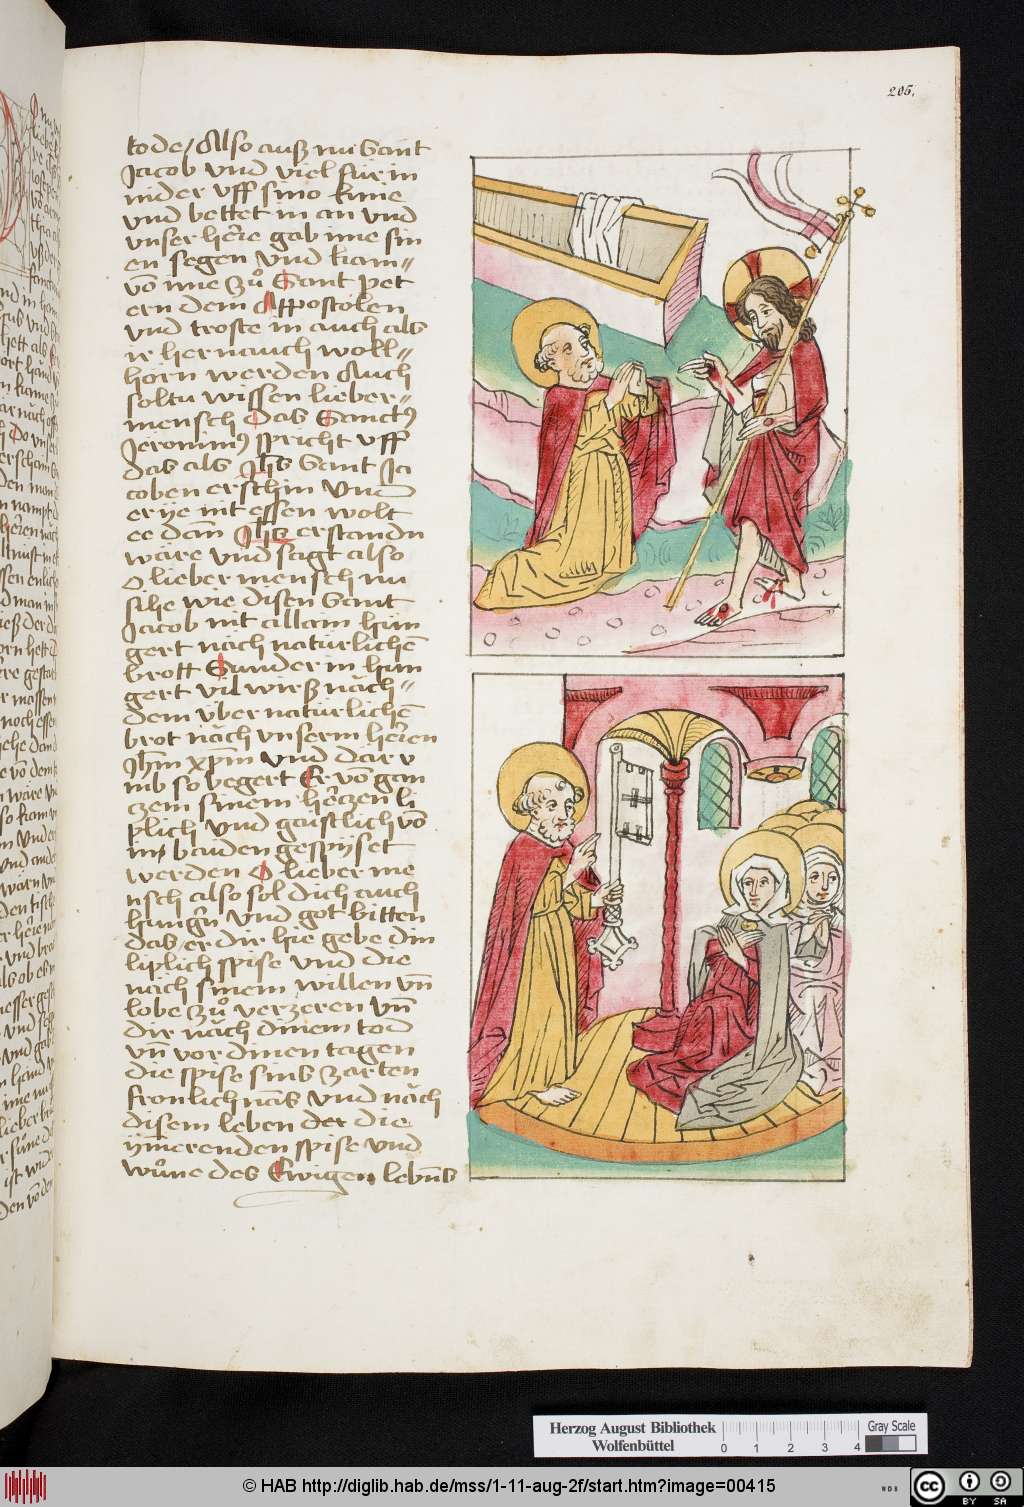 205.
tode / Also auß nu Sant
Jacob vnd viel für in
nider vff sino knne
vnd bettet in an vnd
vnser herre gab ime sin
en segen vnd kam
vō ime zů Sant pet
ern dem Appostolen
vnd troste in auch als
ir hernauch woll
hörn werden Auch
soltu wissen lieber
mensch Das Sanctꝰ
Jeronimꝰ spricht vff
das als Jhs Sant Ja
coben erschin vnd
er ye nit essen wolt
ee dān Jhs erstandn
wäre vnd sagt also
O lieber mensch nu
sihe wie disen Sant
Jacob nit allam hun
gert näch natürlichē
brott Sunder in hun
gert vil wirß näch
dem vbernatürlichē
brot näch vnserm herren
Jhm xpm vnd dar v
mb so begert Er vō gan
czem sinem herczen li
plich vnd gaistlich vō
im baiden gespyset
werden O lieber me
nsch also sol dich auch
hungrn vnd got bitten
das er dir hie gebe din
liplich spise vnd die
näch sinem willen vn̄
lobe zů verzeren vn̄
dir näch dinem tod
vn̄ vor dinen tagen
die spise sins zarten
fronlichnäs vnd näch
disem leben der die
ym̄erenden spise vnd
wůne des Ewigen lebn̄s
Herzog August Bibliothek
Wolfenbüttel
0 1 2 3 4
Gray Scale
© HAB http://diglib.hab.de/mss/1-11-aug-2f/start.htm?image=00415
WDB
cc
BY SA